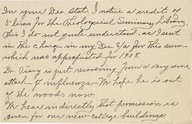 In your Dec. Stat. I notice a credit of
5 lines for the Theological Seminary Library.
This I do not quite understand, as I sent
in the charge in my Dec. S/a for this sum
which was appropriated for 1908.
Dr Vary is just recovering from a very severe
attack of influenza. We hope he is out
of the woods now.
We hear indirectly that permission is
given for our new college buildings.